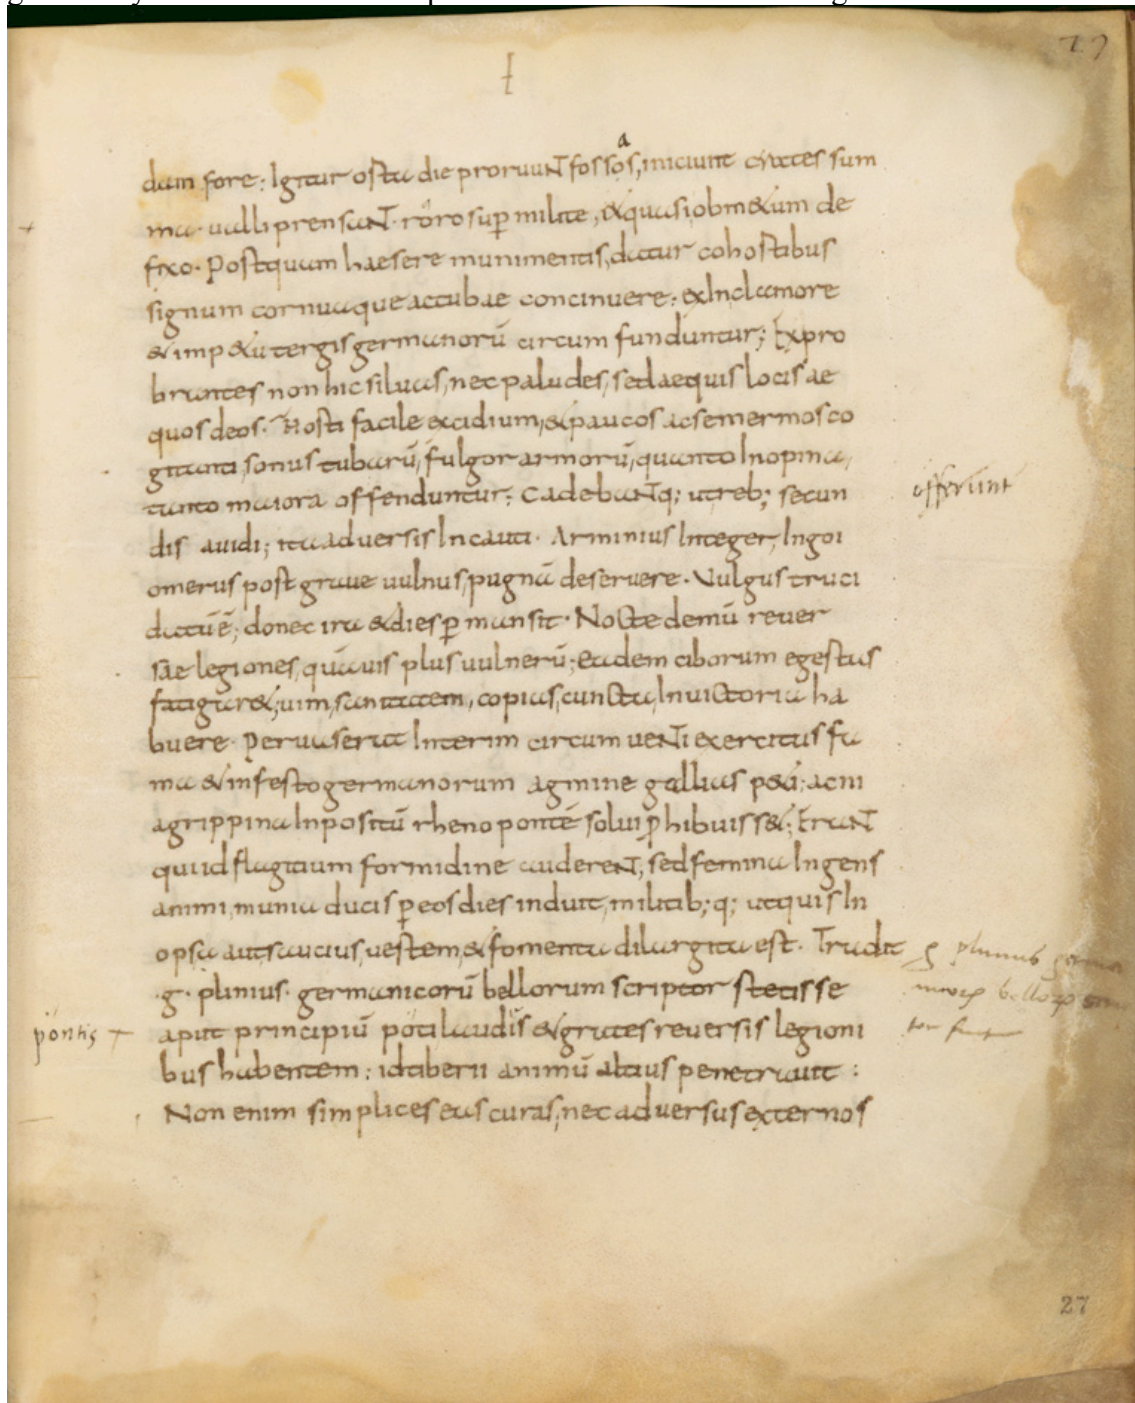 27
a
dam fore; Igitur osta die proruunt fossos, iniciunt crates sum
ma ualli prensant. raro sup milite, & quasi ob m&um de
fixo. Postquam haesere munimentis, datur cohostibus
signum cornuaque ac tubae concinuere; exInclamore
& imp&u tergis germanorū circum funduntur; Expro
brantes non hic siluas, nec paludes, sed aequis locis ae
quos deos. Hosti facile excidium, & paucos ac semermos co
gitanti, sonus tubarū, fulgor armorū, quanto Inopina,
tanto maiora offenduntur; Cadebantq; ut reb; secun
dis auidi; ita aduersis Incauti. Arminius Integer, Ingoi
omerus post graue uulnus, pugnā deseruere. Vulgus truci
datūē; donec ira & dies p mansit. Nocte demū reuer
sae legiones, quāuis plus uulnerū; eadem ciborum egestas
fatigar&; uim, sanitatem, copias, cuncta, Inuictoria ha
buere. Peruaserat Interim circum uenti exercitus fa
ma & infesto germanorum agmine gallias p&i; ac ni
agrippina Inpositū rheno pontē solui p hibuiss&; Erant
qui id flagitium formidine auderent, sed femina Ingens
animi, munia ducis p eos dies induit, militib; q; ut quis In
opsa aut saucius, uestem, & fomenta dilargita est. Tradit
.g. plinius. germanicorū bellorum scriptor stetisse
aput principiū poti laudis & grates reuersis legioni
bus habentem; id tiberii animū altius penetrauit;
Non enim simplices eas curas, nec aduersus externos
offerunt
pontis
27